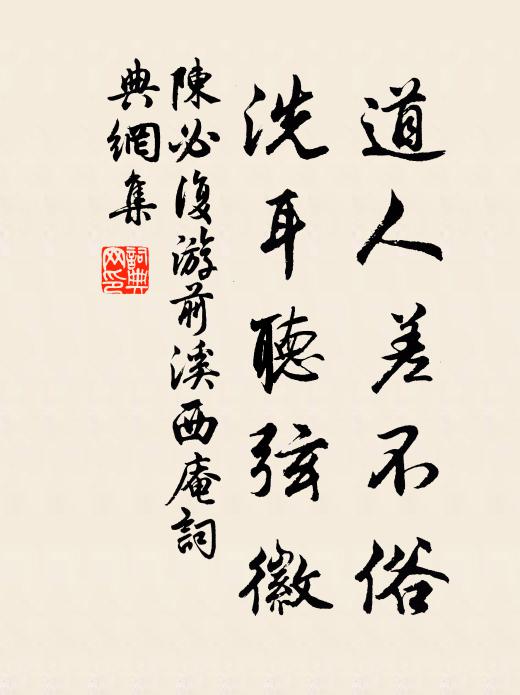 道人差不俗
洗耳聽弦徽
陳必復游前溪西庵詞
典網集
詞典網印